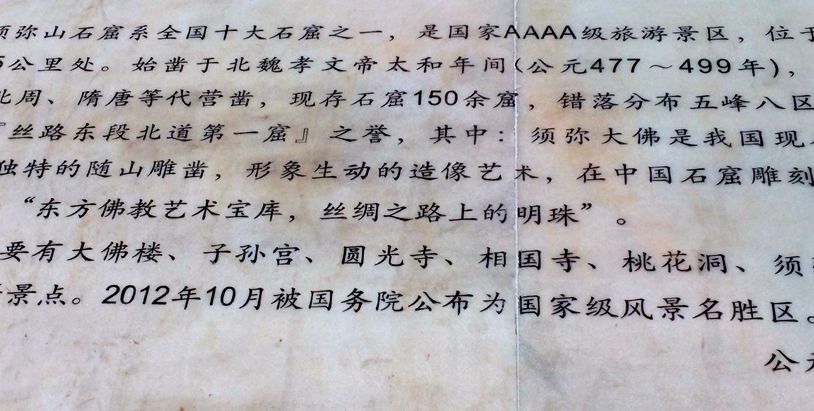 须弥山石窟系全国十大石窟之一，是国家AAAA级旅游景区，位于
公里处。始凿于北魏孝文帝太和年间(公元477～499年)，
北周、隋唐等代营凿，现存石窟150余窟，错落分布五峰八区
『丝路东段北道第一窟』之誉，其中：须弥大佛是我国现
独特的随山雕凿，形象生动的造像艺术，在中国石窟雕刻
“东方佛教艺术宝库，丝绸之路上的明珠”。
要有大佛楼、子孙宫、圆光寺、相国寺、桃花洞、须
景点。2012年10月被国务院公布为国家级风景名胜区。
公元